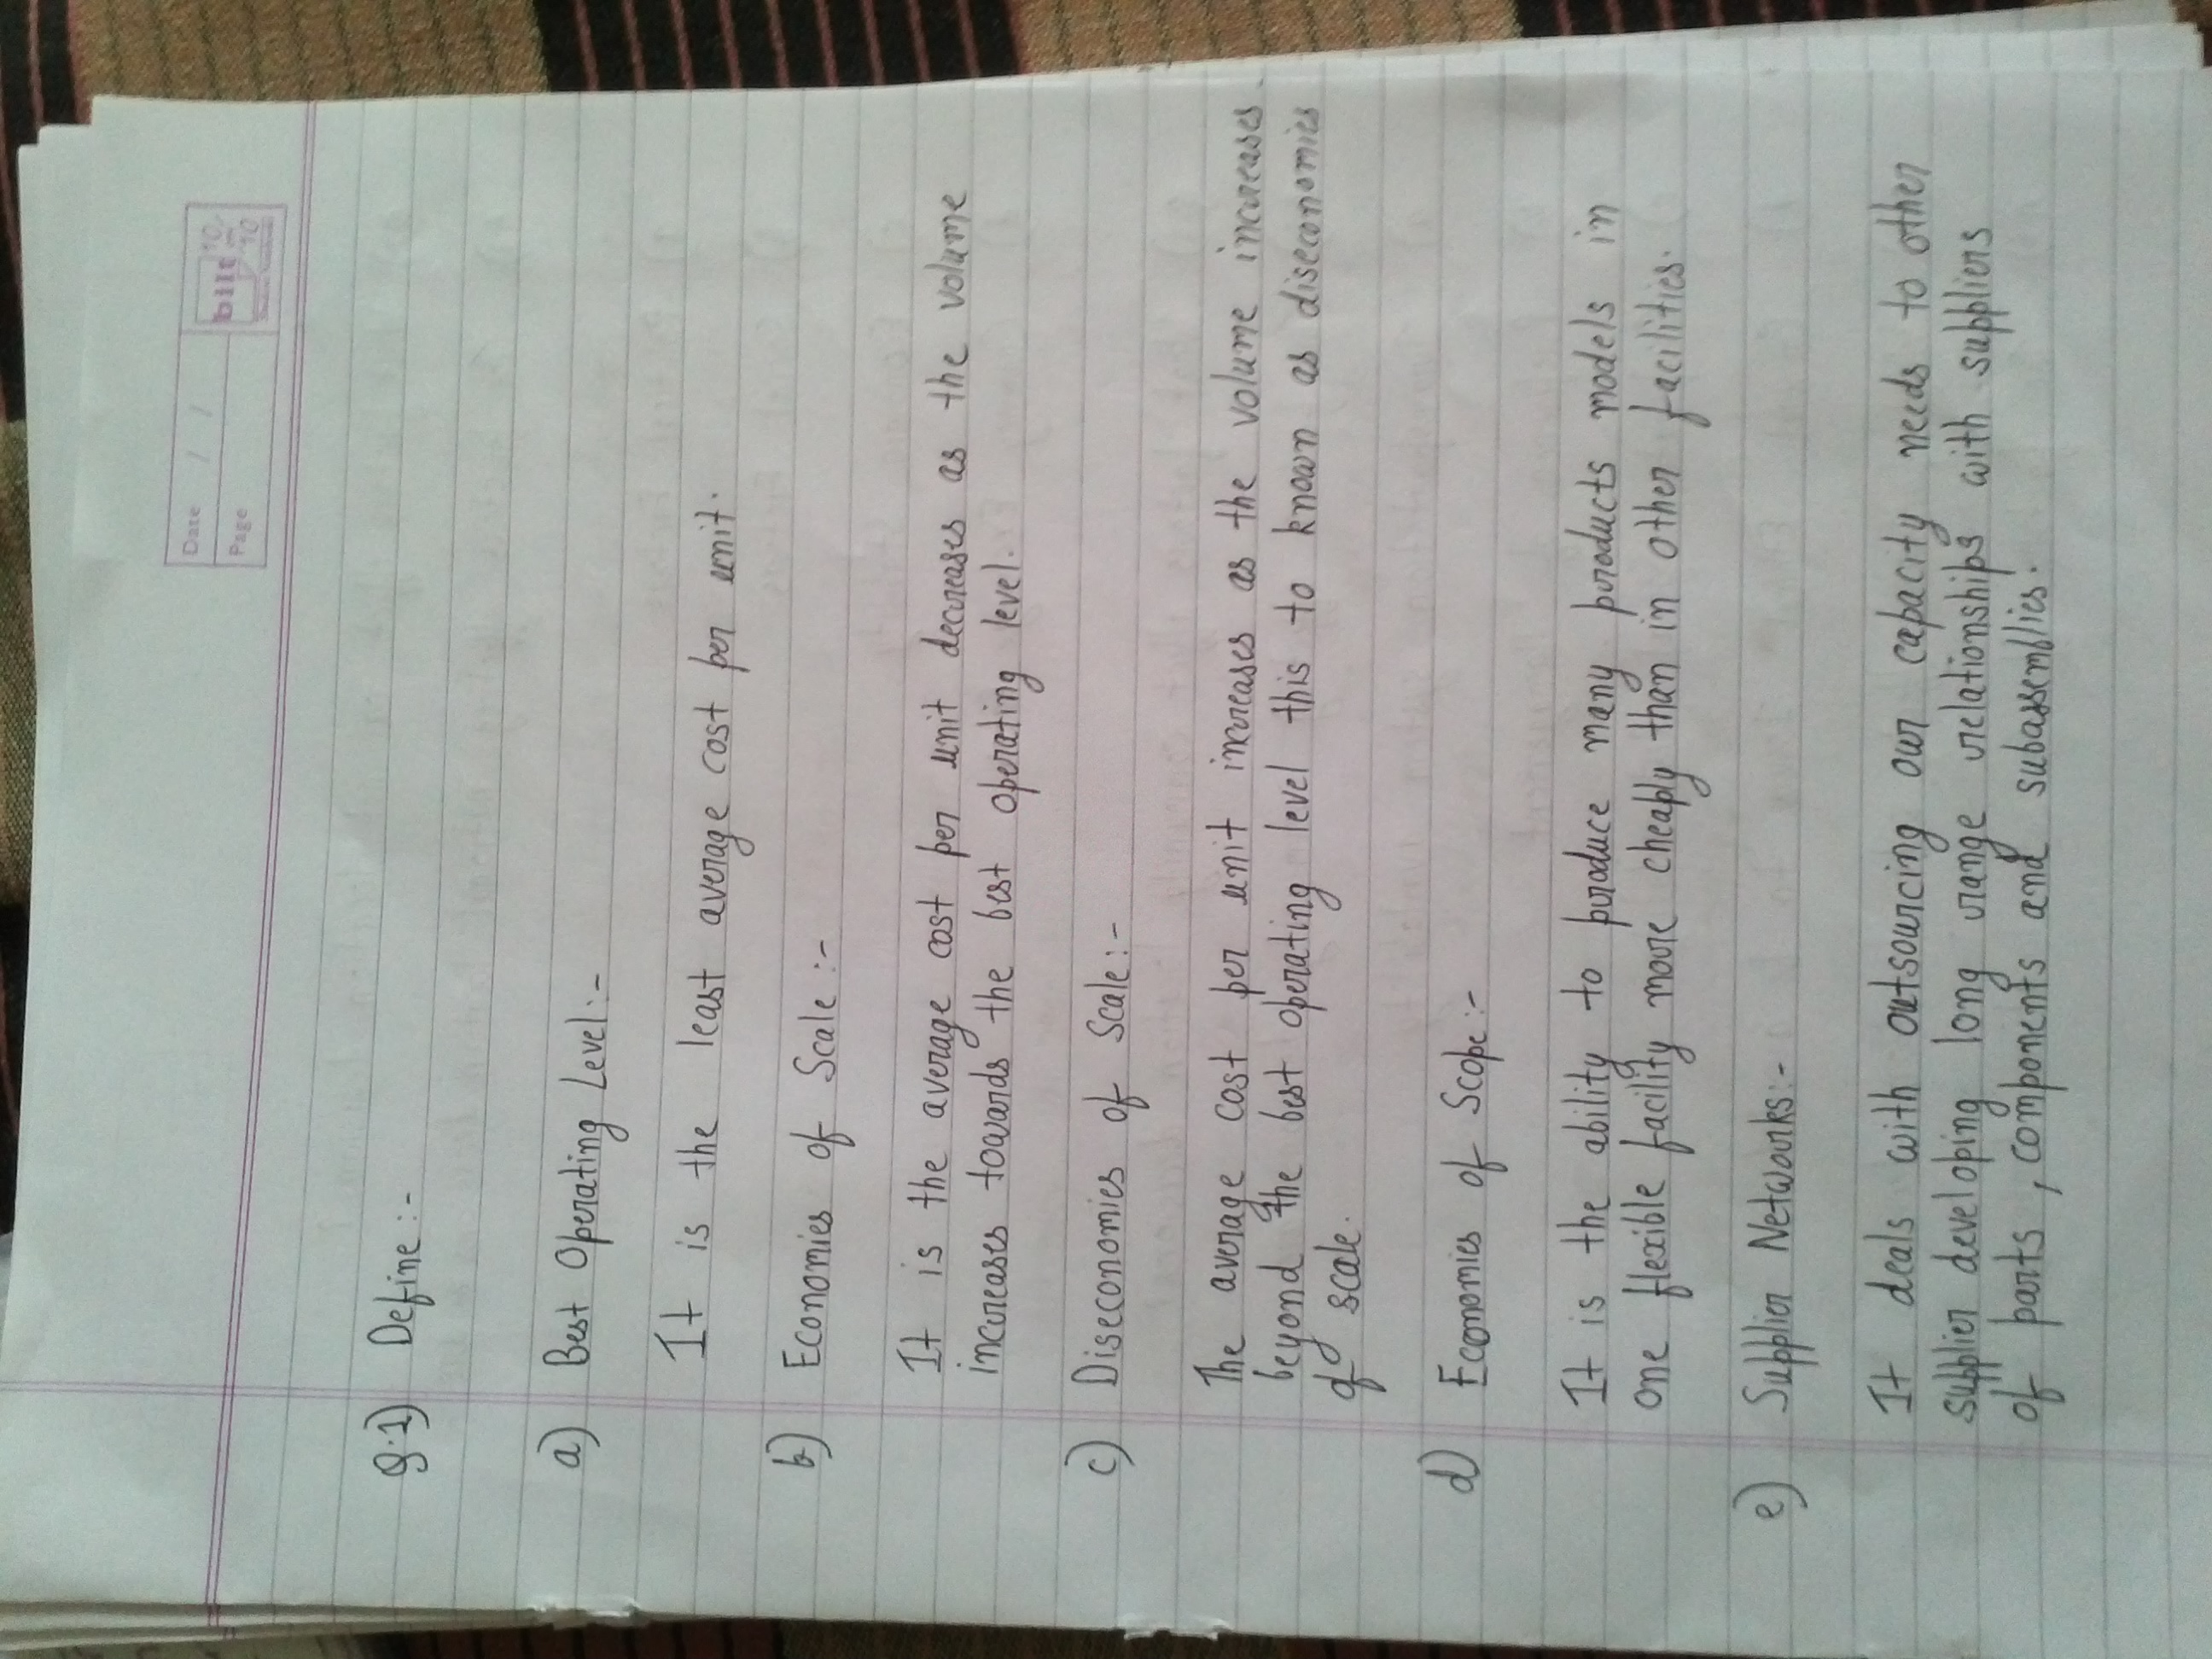 Date / /
Page
bilt
Q.1) Define :-
a) Best Operating Level:-
It is the least average cost per unit.
b) Economies of Scale :-
It is the average cost per unit decreases as the volume
increases towards the best operating level.
c) Diseconomies of Scale:-
The average cost per unit increases as the volume increases.
beyond the best operating level this to known as diseconomies
of scale.
d) Economies of Scope:-
It is the ability to produce many products models in
one flexible facility more cheaply than in other facilities.
e) Supplier Networks:-
It deals with outsourcing our capacity needs to other
supplier developing long range relationships with suppliers
of parts, components and subassemblies.